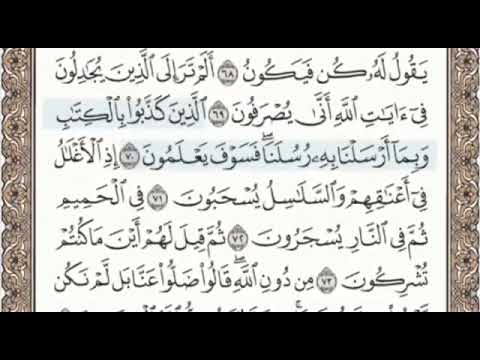 يَقُولُ لَهُۥ كُن فَيَكُونُ ۝٦٨ أَلَمْ تَرَ إِلَى ٱلَّذِينَ يُجَٰدِلُونَ
فِىٓ ءَايَٰتِ ٱللَّهِ أَنَّىٰ يُصْرَفُونَ ۝٦٩ ٱلَّذِينَ كَذَّبُوا۟ بِٱلْكِتَٰبِ
وَبِمَآ أَرْسَلْنَا بِهِۦ رُسُلَنَا ۖ فَسَوْفَ يَعْلَمُونَ ۝٧٠ إِذِ ٱلْأَغْلَٰلُ
فِىٓ أَعْنَٰقِهِمْ وَٱلسَّلَٰسِلُ يُسْحَبُونَ ۝٧١ فِى ٱلْحَمِيمِ
ثُمَّ فِى ٱلنَّارِ يُسْجَرُونَ ۝٧٢ ثُمَّ قِيلَ لَهُمْ أَيْنَ مَا كُنتُمْ
تُشْرِكُونَ ۝٧٣ مِن دُونِ ٱللَّهِ ۖ قَالُوا۟ ضَلُّوا۟ عَنَّا بَل لَّمْ نَكُن